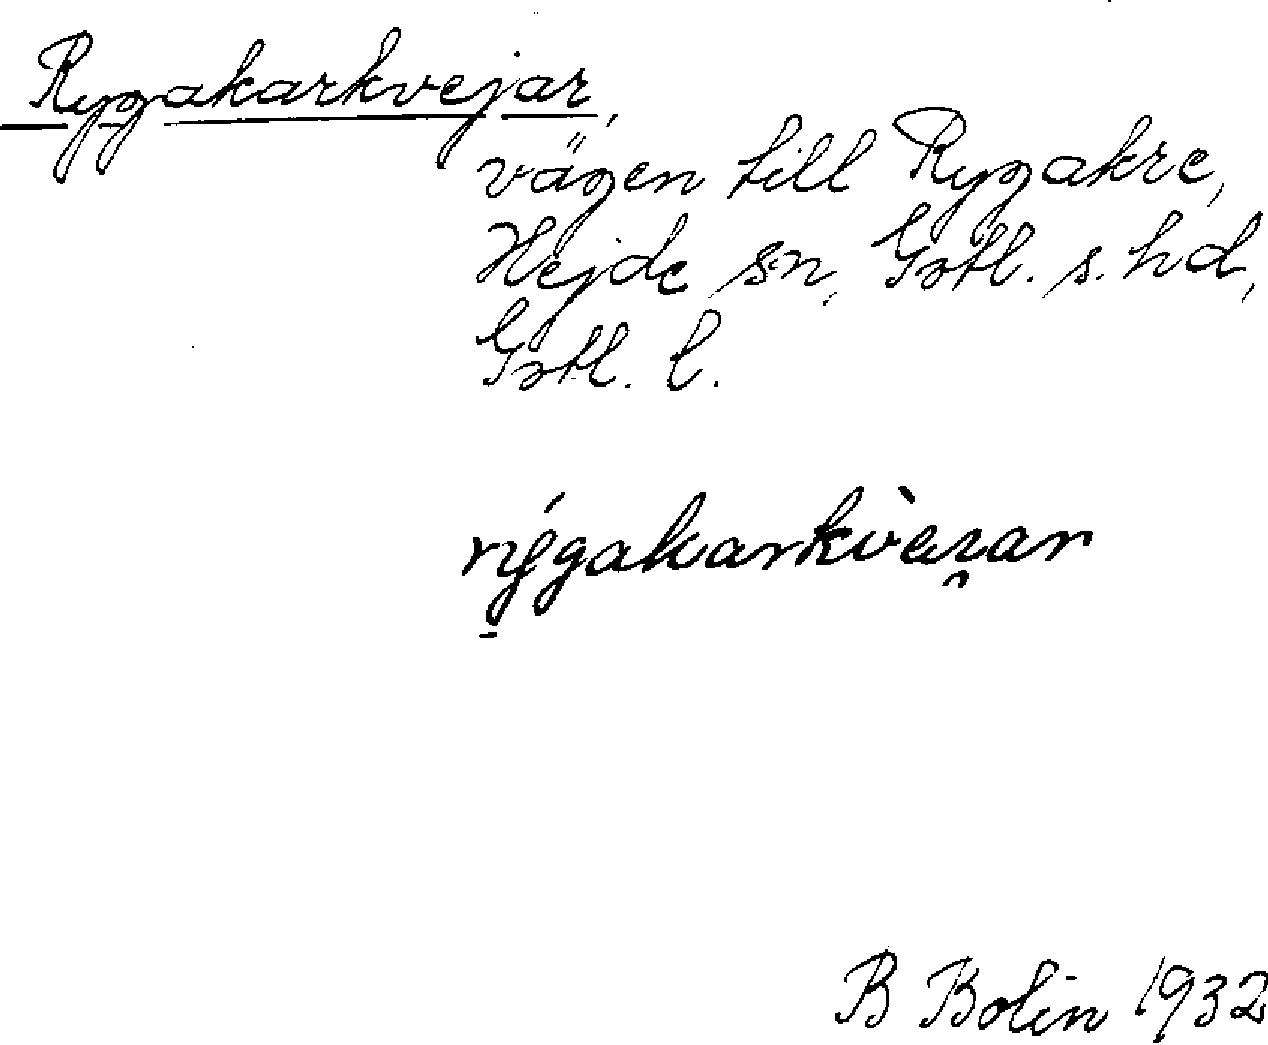 Rygakarkvejar,
vägen till Rygakre,
Hejde sn, Gotl. s. hd,
Gotl. l.
rýgakarkvèạrar
B Bolin 1932